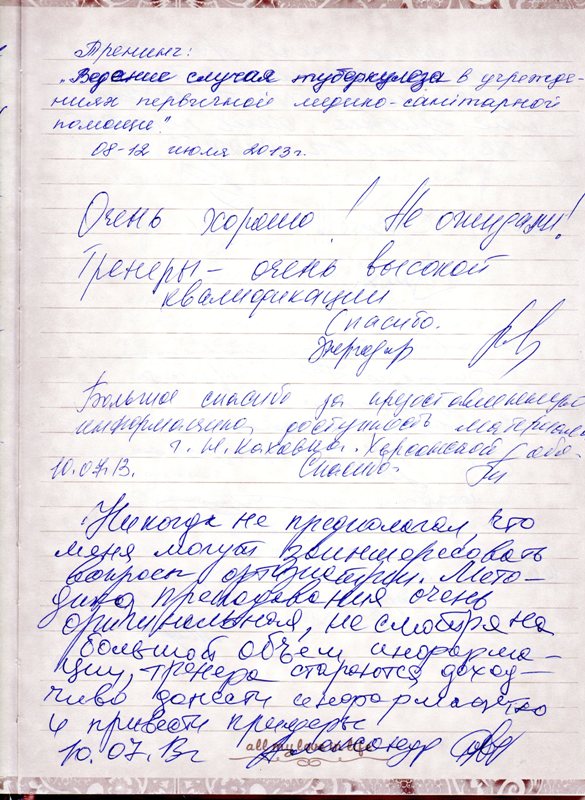 Тренинг:
„Ведение случая туберкулеза в учрежде-
ниях первичной медико-санитарной
помощи."
08-12 июля 2013г.
Очень хорошо! Не ожидали!
Тренеры – очень высокой
квалификации
Спасибо.
Энергодар
Большое спасибо за предоставленную
информацию, доступность материала
г. Н. Каховка. Херсонской обл.
10.07.13. Спасибо.
Никогда не предполагал, что
меня могут заинтересовать
вопросы фтизиатрии. Мето-
дика преподавания очень
оригинальная, не смотря на
большой объём информа-
ции, тренера стараются доход-
чиво донести информацию
и привести примеры
10.07.13г Александр
all my love in life